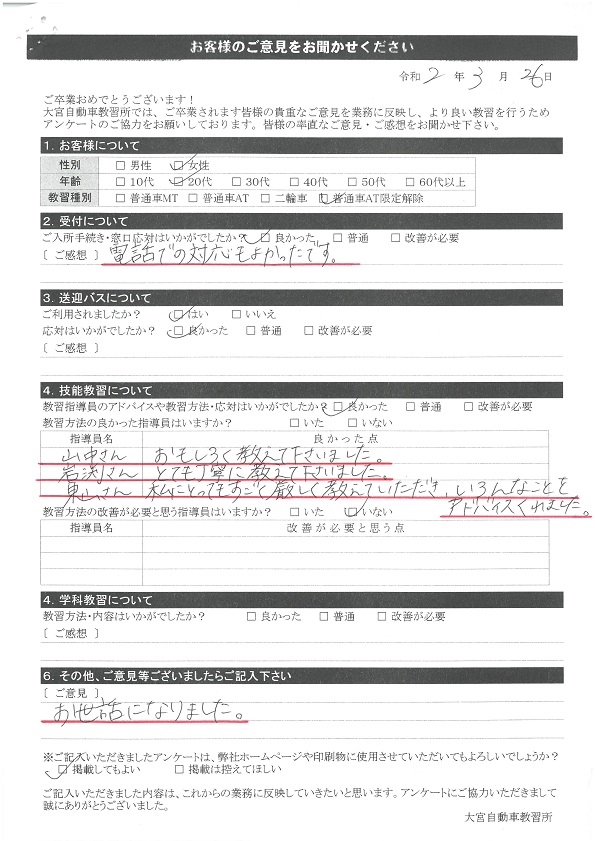 お客様のご意見をお聞かせください
令和 2 年 3 月 26日
ご卒業おめでとうございます！
大宮自動車教習所では、ご卒業されます皆様の貴重なご意見を業務に反映し、より良い教習を行うため
アンケートのご協力をお願いしております。皆様の率直なご意見・ご感想をお聞かせ下さい。
1. お客様について
性別 □ 男性 ☑ 女性
年齢 □ 10代 ☑ 20代 □ 30代 □ 40代 □ 50代 □ 60代以上
教習種別 □ 普通車MT □ 普通車AT □ 二輪車 ☑ 普通車AT限定解除
2. 受付について
ご入所手続き・窓口応対はいかがでしたか？ ☑ 良かった □ 普通 □ 改善が必要
〔 ご感想 〕 電話での対応もよかったです。
3. 送迎バスについて
ご利用されましたか？ ☑ はい □ いいえ
応対はいかがでしたか？ ☑ 良かった □ 普通 □ 改善が必要
〔 ご感想 〕
4. 技能教習について
教習指導員のアドバイスや教習方法・応対はいかがでしたか？ ☑ 良かった □ 普通 □ 改善が必要
教習方法の良かった指導員はいますか？ □ いた □ いない
指導員名 良かった点
山中さん おもしろく教えて下さいました。
岩渕さん とても丁寧に教えて下さいました。
東山さん 私にとってもすごく厳しく教えていただき、いろんなことを
アドバイスくれました。
教習方法の改善が必要と思う指導員はいますか？ □ いた ☑ いない
指導員名 改善が必要と思う点
4. 学科教習について
教習方法・内容はいかがでしたか？ □ 良かった □ 普通 □ 改善が必要
〔 ご感想 〕
6. その他、ご意見等ございましたらご記入下さい
〔 ご意見 〕
お世話になりました。
※ご記入いただきましたアンケートは、弊社ホームページや印刷物に使用させていただいてもよろしいでしょうか？
☑ 掲載してもよい □ 掲載は控えてほしい
ご記入いただきました内容は、これからの業務に反映していきたいと思います。アンケートにご協力いただきまして
誠にありがとうございました。
大宮自動車教習所